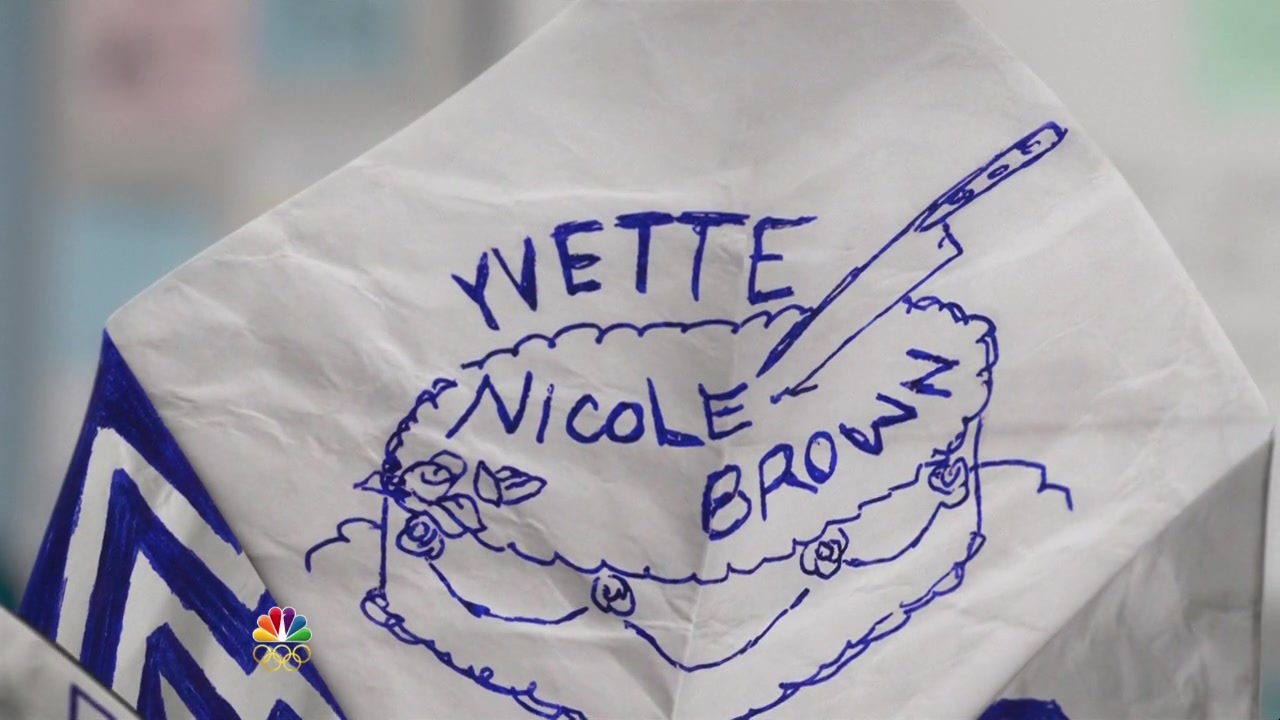 YVETTE
NICOLE
BROWN